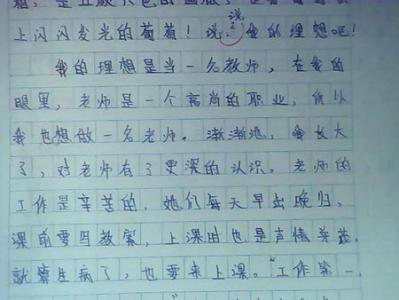 上闪闪发光的葡萄！说说我的理想吧！
我的理想是当一名教师，在我的
眼里，老师是一个高尚的职业，所以
我也想做一名老师。渐渐地，我长大
了，对老师有了更深的认识。老师的
工作是辛苦的，她们每天早出晚归，
课前要写教案，上课时也是声情并茂，
就算生病了，也要来上课。“工作第一，